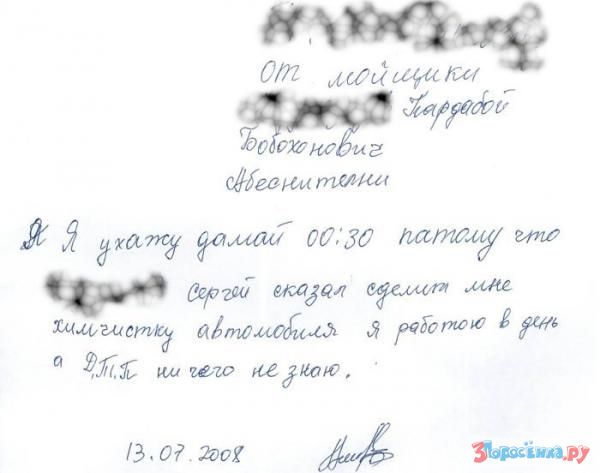 От мойщики
Пардабой
Бобохонович
Абеснителни
Я Я ухажу дамай 00:30 патому что
сергей сказал сделит мне
химчистку автомобиля я работою в день
а Д.Т.П ни чего не знаю.
13.07.2008
3Поросёнка.ру